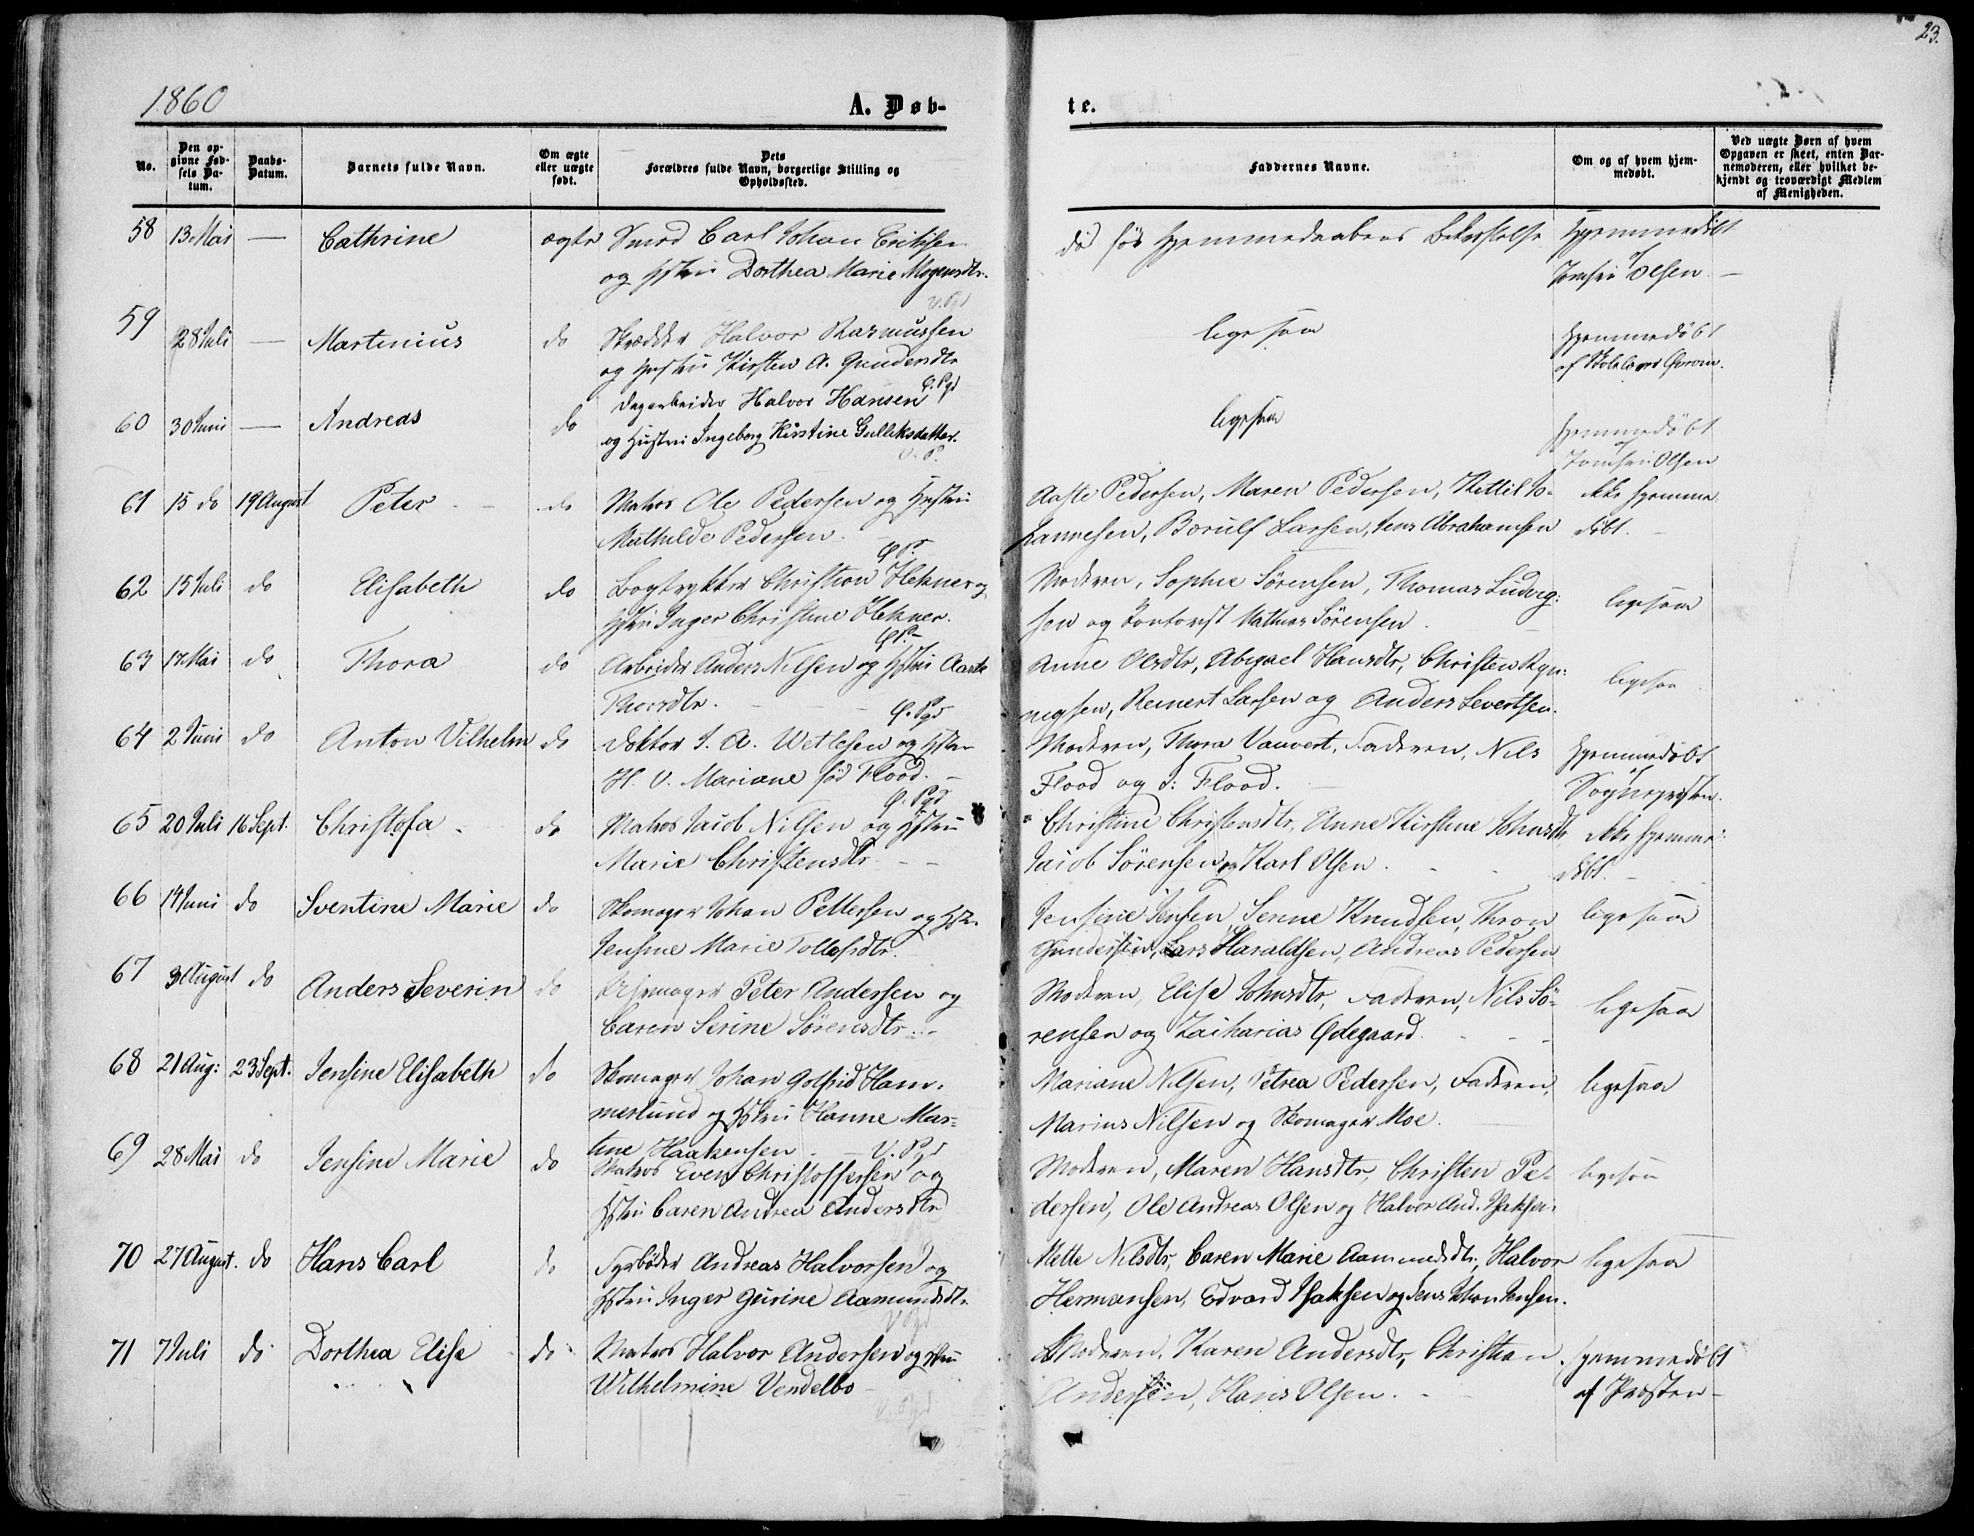 23.
1860
A. Døb-
te.
No.
Den op-
givne Fød-
sels Da-
tum.
Daabs-
Datum.
Barnets fulde Navn.
Om ægte
eller uægte
født.
Dets
Forældres fulde Navn, borgerlige Stilling og
Opholdssted.
Faddernes Navne.
Om og af hvem hjem-
medøbt.
Ved uægte Børn af hvem
Opgaven er skeet, enten Bar-
nemoderen, eller hvilket be-
kjendt og troværdigt Medlem
af Menigheden.
58 13 Mai — Cathrine ægte Smed Carl Johan Eriksen
og Hstru Dorthea Marie Mogensdtr.
død før Hjemmedaabens Bekræftelse
Hjemmedøbt
af
Jomfru Olsen —
59 28 Juli — Martinius do Skrædder Halvor Rasmussen
og Hustru Kirsten A. Gundersdtr
ligesaa
Hjemmedøbt
af
60 30 Juni — Andreas do Dagarbeider Halvor Hansen Ø. Pgd
og Hustru Ingeborg Kirstine Gulliksdatter.
ligesaa
Hjemmedøbt
af
Jomfru Olsen
61 15 do 19 August Peter do Matros Ole Pedersen og Hustru
Mathilde Pedersen.
Aaste Pedersen, Maren Pedersen, Kittil Jo-
hannesen, Børulf Larsen, Jens Abrahamsen
ikke hjemme-
døbt.
Ø P.
62 15 Juli do Elisabeth do Bogtrykker Christian Hekner og
Hstru Inger Christine Hekner.
Moderen, Sophie Sørensen, Thomas Ludvig-
sen og Kontorist Mathias Sørensen.
ligesaa
Ø P.
63 17 Mai do Thora do Arbeider Anders Nilsen og Hstru Aaste
Thordtr.
Anne Olsdtr, Abigael Hansdtr, Christen Ryn-
ningsen, Reinert Larsen og Anders Severtsen.
ligesaa
Ø. Pgd
64 2 Juni do Anton Vilhelm do Doktor J. A. Wetlesen og Hstru
H. V. Mariane fød Flood.
Moderen, Thora Vauvert, Faderen, Nils
Flood og J: Flood.
Hjemmedøbt
af
Sognepresten.
Ø. Pgd
65 20 Juli 16 Sept. Christofa do Matros Jacob Nilsen og Hstru
Marie Christensdtr.
Christine Christensdtr, Anne Kirstine Johnsdtr,
Jacob Sørensen og Karl Olsen.
ikke hjemme-
døbt.
66 14 Juni do Sventine Marie do Skomager Johan Pettersen og Hstr.
Jensine Marie Tollefsdtr.
Jensine Jensen, Senne Knudsen, Thron
Gundersen, Lars Haraldsen, Andreas Pedersen
ligesaa
67 3 August do Anders Severin do Peter Andersen og
Caren Serine Sørensdtr.
Moderen, Elise Johnsdtr, Faderen, Nils Sø-
rensen og Zacharias Ødegaard.
ligesaa
68 21 Aug: 23 Sept. Jensine Elisabeth do Skomager Johan Gotfrid Ham-
merlund og Hstru Hanne Mar-
tine Haakensen V. Pgd
Mariane Nilsen, Petrea Pedersen, Faderen,
Marius Nilsen og Skomager Moe.
ligesaa
69 28 Mai do Jensine Marie do Matros Even Christoffersen og
Hstru Caren Andrea Andersdtr
Moderen, Maren Hansdtr, Christen Pe-
dersen, Ole Andreas Olsen og Halvor And. Isaksen.
ligesaa
70 27 August. do Hans Carl do Fyrbøder Andreas Halvorsen og
Hstru Inger Gurine Aamundsdtr.
Mette Nilsdtr, Caren Marie Aamundsdtr, Halvor
Hermansen, Edvard Isaksen og Jens Johan Jensen.
ligesaa
V Pgd
71 7 Juli do Dorthea Elise do Matros Halvor Andersen og Hstru
Wilhelmine Vendelbo
Moderen, Karen Andersdtr, Christian
Andersen, Hans Olsen.
Hjemmedøbt
af Præsten